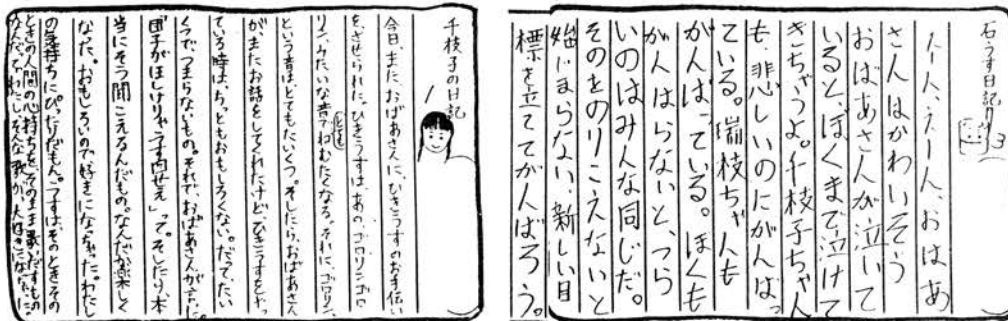 石うす日記
えーん、えーん、おばあ
さんはかわいそう
おばあさんが泣いて
いると、ぼくまで泣けて
きちゃうよ。千枝子ちゃん
も、悲しいのにがんばっ
ている。瑞枝ちゃんも
がんばっている。ぼくも
がんばらないと、つら
いのはみんな同じだ。
そのをのりこえないと
始じまらない、新しい目
標を立ててがんばろう。
千枝子の日記
今日、また、おばあさんに、ひきうすのお手伝い
をさせられた。ひきうすは、あの「ゴロリンゴロ
リン」みたいな音でねむたくなる。それに、ゴロリン、
という音は、とてもたいくつ。そしたら、おばあさん
が、またお話をしてくれたけど、ひきうすをひい
ている時は、ちっともおもしろくない。だって、たい
くつで、つまらないもの。それで、おばあさんが言った。
団子がほしけりゃうす回せえ」って。そしたら、本
当にそう聞こえるんだもの。なんだか楽しく
なった。おもしろいので、好きになっちゃった。わたし
の気持ちにぴったりだもん。うすは、そのときその
ときの人間の心持ちを、そのまま歌いだすもの
なんだって。わたし、そんな歌が、大好きになった